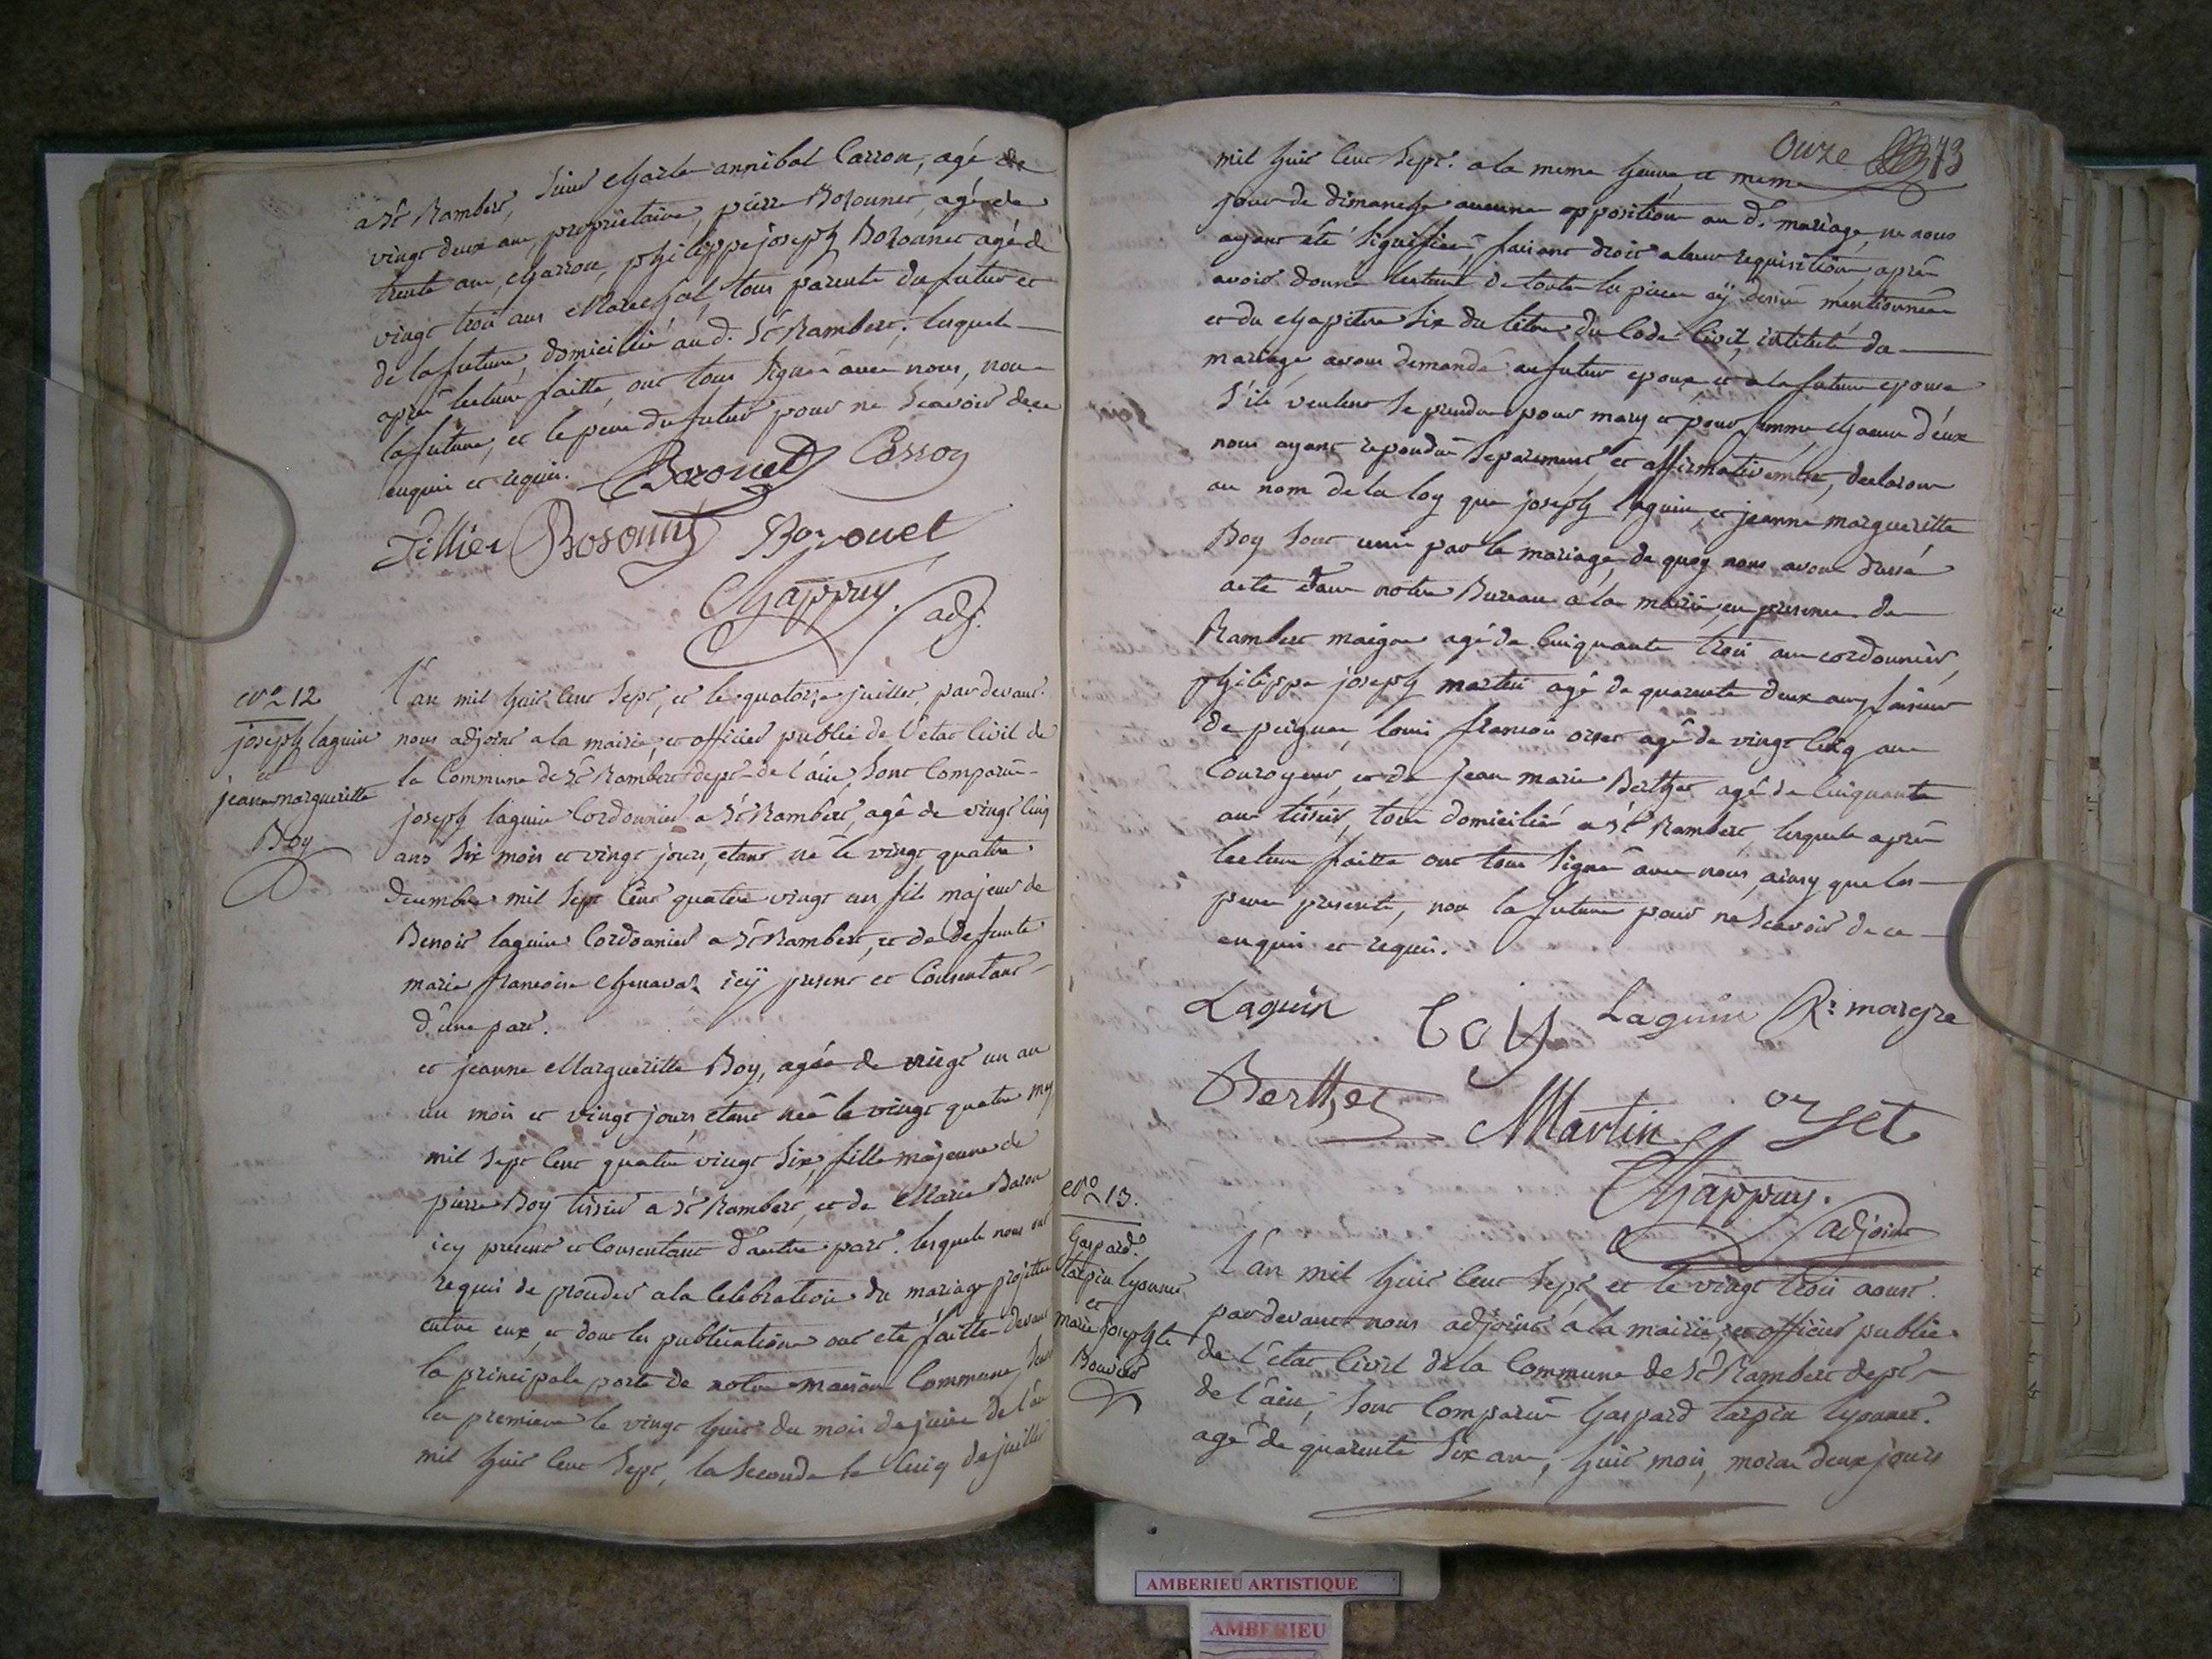 a St Rambert, Sieur charle annibal Carron, agé de
vingt deux ans, propriétaire, pierre Bozonnet, agé de
trente ans, charron, philippe joseph Bozonnet agé de
vingt trois ans Marechal, tous parents du futur et
de la future, domiciliés au d. St Rambert; lesquels
après lecture faitte, ont tous signés avec nous, non
la future, et le pere du futur pour ne scavoir de ce
enquis et requis. Bozonet Carron
Tillier Bosonnet Bozonet
Chappuy adj.
No 12
joseph laguin
et
jeanne margueritte
Boy
l'an mil huit cent sept, et le quatorze juillet, pardevant
nous adjoint a la mairie, et officier public de l'état civil de
la Commune de St Rambert dept de l'ain, sont comparus
joseph laguin Cordonnier a St Rambert, agé de vingt cinq
ans six mois et vingt jours, etant né le vingt quatre
decembre mil sept cent quatre vingt un fils majeur de
Benoit laguin Cordonnier a St Rambert, et de defunte
marie francoise chenaval icy present et Consentant
d'une part.
et jeanne Margueritte Boy, agée de vingt un an
un mois et vingt jours, etant née le vingt quatre may
mil sept cent quatre vingt six, fille majeure de
pierre Boy tissier a St Rambert, et de Marie Baron
icy present et Consentant d'autre part. lesquels nous ont
requis de proceder a la celebration du mariage projetté
entre eux, et dont les publications ont eté faittes devant
la principale porte de notre maison Commune,
la premiere le vingt huit du mois de juin de l'an
mil huit cent sept, la seconde le cinq de juillet
Onze 73
mil huit cent sept. a la meme heure et meme
jour de dimanche aucune opposition au d. mariage, ne nous
ayant été signifiée, faisant droit a leur requisition, après
avoir donné lecture de toutes les pieces cy dessus mentionnées
et du chapitre six du titre du Code Civil, intitulé du
mariage avons demandé au futur epoux et a la future epouse
s'ils veulent se prendre pour mary et pour femme, chacun d'eux
nous ayant repondu separement et affirmativement, declarons
au nom de la loy que joseph laguin et jeanne margueritte
Boy sont unis par le mariage, de quoy nous avons dressé
acte dans notre Bureau a la mairie, en presence de
Rambert maigre agé de Cinquante trois ans cordonnier,
philippe joseph martin agé de quarente deux ans faiseur
de peignes, louis francois orset agé de vingt cinq ans
Couroyeur, et de jean marie Berthet agé de Cinquante
ans tissier, tous domiciliés a St Rambert, lesquels après
lecture faitte ont tous signés avec nous, ainsy que les
peres presents, non la future pour ne scavoir de ce
enquis et requis.
Laguin boy Laguin R: maigre
Berthet Martin orset
Chappuy.
adjoint
No 13.
Gaspard
tarpin lyonnet
et
marie josephte
Bouvier
l'an mil huit cent sept et le vingt trois aoust.
pardevant nous adjoint a la mairie, et officier public
de l'état Civil de la Commune de St Rambert dept
de l'ain, sont Comparus Gaspard tarpin lyonnet.
agé de quarente six ans, huit mois, moins deux jours
AMBERIEU ARTISTIQUE
AMBERIEU